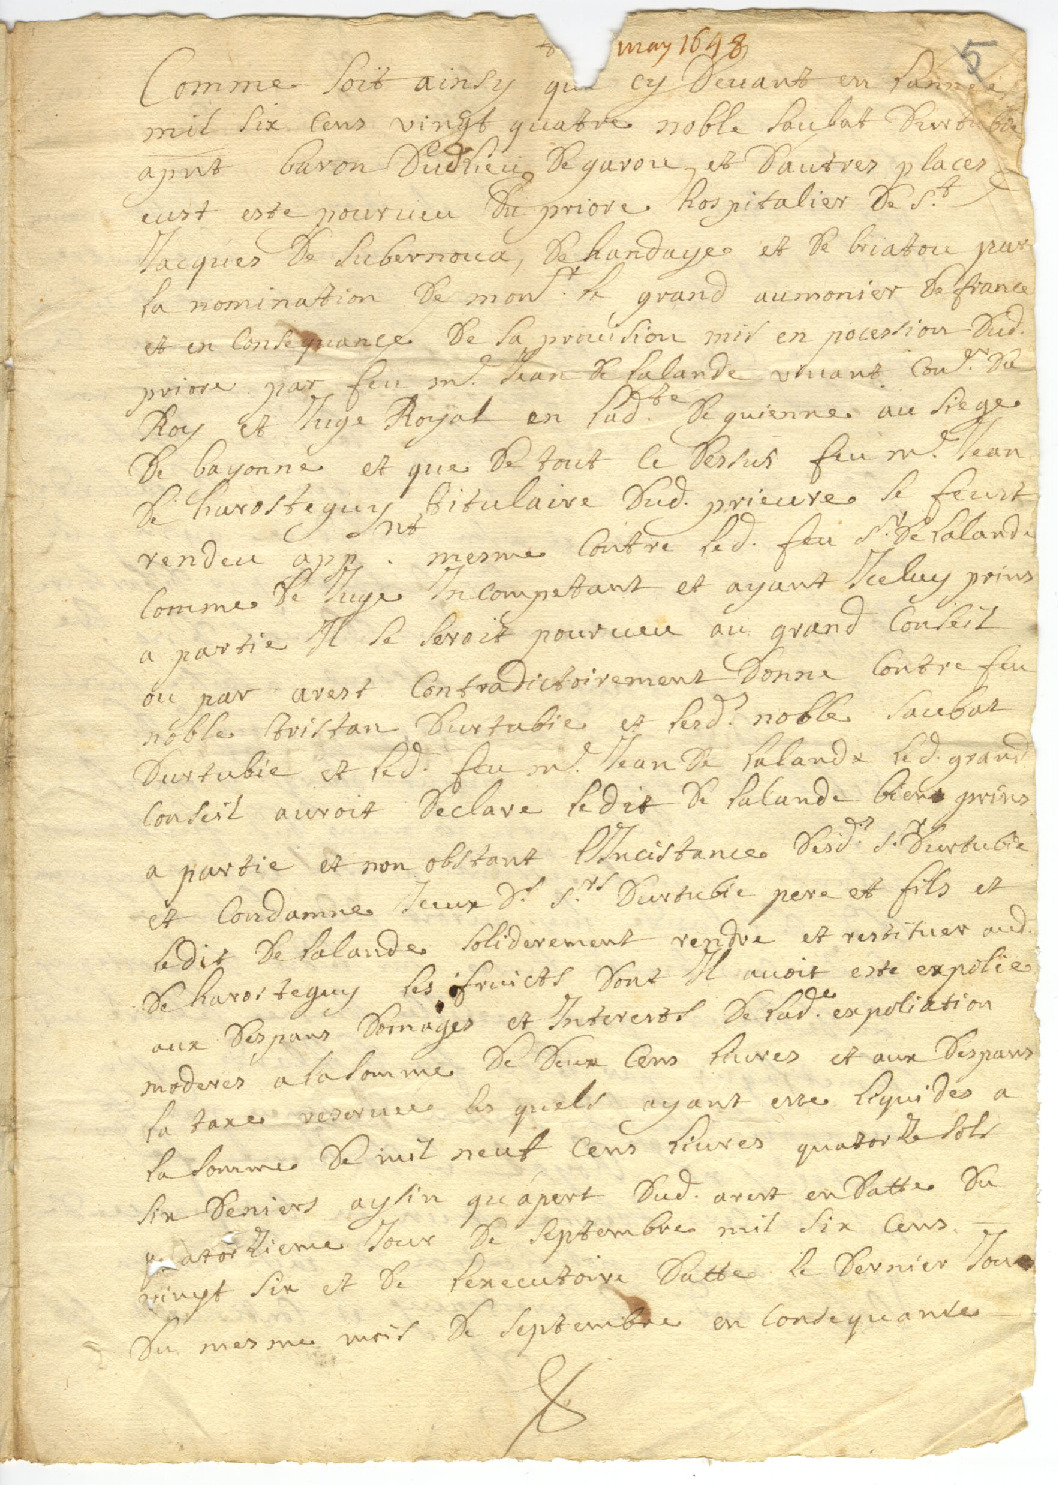 8 may 1648
5
Comme soit ainsy que cy devant en lannee
mil six cens vingt quatre noble saubat durtubie
apnt baron dudlieu de garou et dautres places
eust este pourueu du priore hospitalier de s.t
Jacques de subernoua, de handaye et de briatou par
la nomination de mons.r le grand aumonier de france
et en consequance de la prouision mis en pocession dud.
priore par feu m.e Jean de Lalande viuant con.er du
Roy et Juge Royal en lad.te de guienne au siege
de bayonne et que de tout ce dessus feu m.e Jean
de harosteguy titulaire dud. prieure se feust
rendeu app.nt mesme contre led. feu s.r de Lalande
comme de Juge Incompettant et ayant Iceluy prins
a partie Il se seroit pourueu au grand Conseil
ou par arest contradictoirement donne contre feu
noble tristan durtubie et lesd.s noble saubat
durtubie et led. feu m.e Jean de Lalande led. grand
conseil auroit declare ledit de Lalande bien prins
a partie et non obstant l'Incistance desd.s s.rs durtubie
et condamne Iceux d.s s.rs durtubie pere et fils et
ledit de Lalande soliderement rendre et restituer aud.
de harosteguy les fruicts dont Il auoit este expolie
aux despans domages et Interests de lad.e expoliation
moderes a la somme de deux cens liures et aux despans
la taxe reseruee les quels ayant este liquides a
la somme de mil neuf cens liures quatorze sols
six deniers aysin qu'apert dud. arest en datte du
quatorzieme Jour de septembre mil six cens
vingt six et de lexecutoire datte le dernier Jour
du mesme mois de septembre en consequance